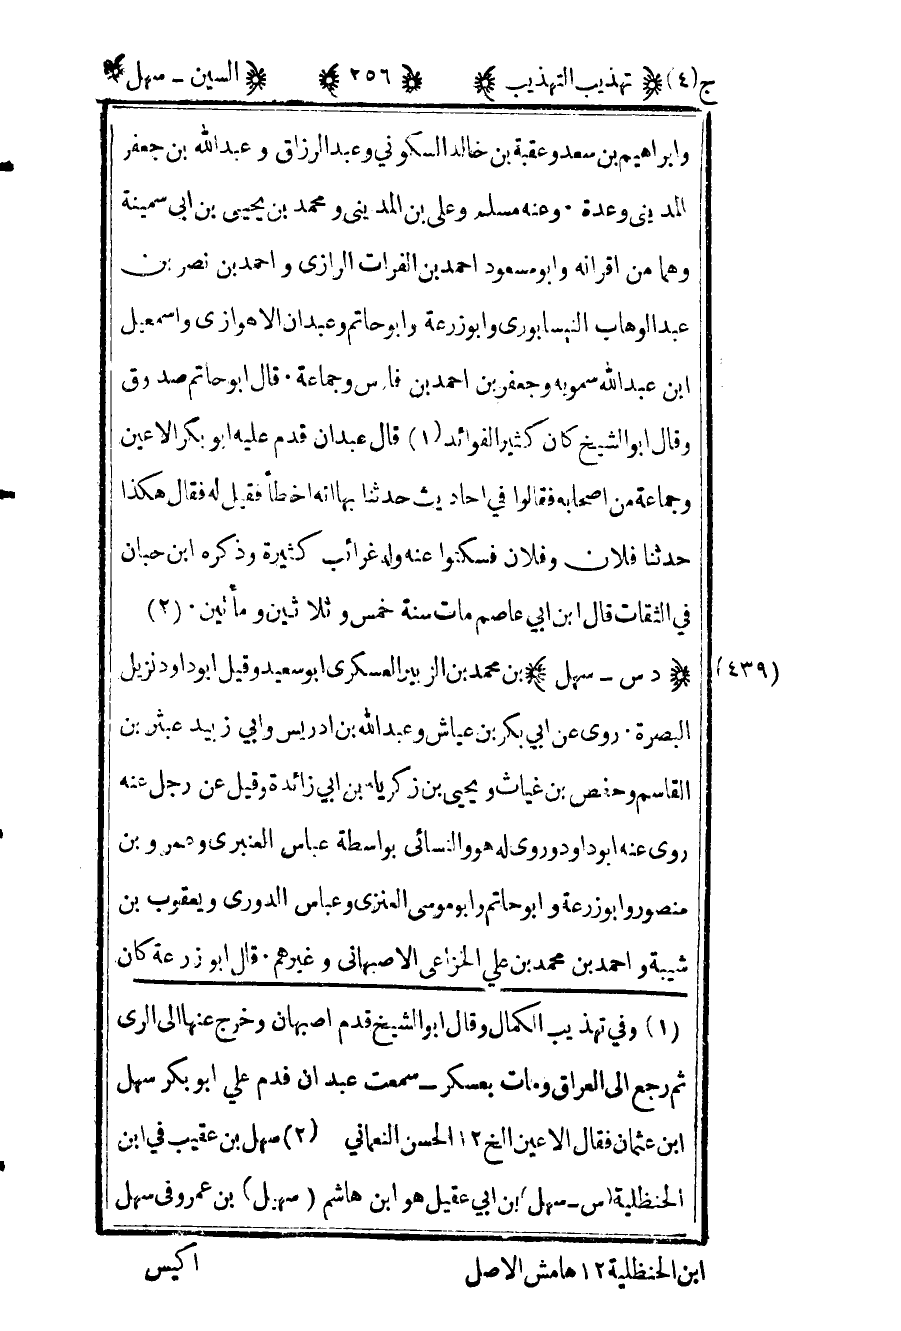 ج(٤) ﴿ تهذيب التهذيب ﴾ ﴿ ٢٥٦ ﴾ ﴿ السين ــ سهل ﴾
وابراهيم بن سعد وعقبة بن خالد السكوني وعبد الرزاق و عبدالله بن جعفر
المديني وعدة ٠ وعنه مسلم وعلي بن المديني و محمد بن يحيى بن ابي سمينة
وهما من اقرانه وابو مسعود احمد بن الفرات الرازي و احمد بن نصر بن
عبد الوهاب النيسابوري وابو زرعة وابو حاتم وعبدان الاهوازي واسمعيل
ابن عبدالله سمويه وجعفر بن احمد بن فارس وجماعة ٠ قال ابو حاتم صدوق
وقال ابو الشيخ كان كثير الفوائد (١) قال عبدان قدم عليه ابو بكر الاعين
وجماعة من اصحابه فقالوا في احاديث حدثنا بها انه اخطأ فقيل له فقال هكذا
حدثنا فلان وفلان فسكتوا عنه وله غرائب كثيرة وذكره ابن حبان
في الثقات قال ابن ابي عاصم مات سنة خمس و ثلاثين و مأتين ٠ (٢)
(٤٣٩) ﴿ د س ــ سهل ﴾ بن محمد بن الزبير العسكري ابو سعيد وقيل ابو داود نزيل
البصرة ٠ روى عن ابي بكر بن عياش وعبدالله بن ادريس وابي زبيد عبثر بن
القاسم وحفص بن غياث و يحيى بن زكرياء بن ابي زائدة وقيل عن رجل عنه
روى عنه ابو داود وروى له هو والنسائي بواسطة عباس العنبري وعمرو بن
منصور وابو زرعة و ابو حاتم وابو موسى العنزي وعباس الدوري ويعقوب بن
شيبة و احمد بن محمد بن علي الخزاعي الاصبهاني و غيرهم ٠ قال ابو زرعة كان
(١) وفي تهذيب الكمال وقال ابو الشيخ قدم اصبهان وخرج عنها الى الري
ثم رجع الى العراق ومات بعسكر ــ سمعت عبدان قدم علي ابو بكر سهل
ابن عثمان فقال الاعين الخ ١٢ الحسن النعماني (٢) سهل بن عقيب في ابن
الحنظلية (س ــ سهل) بن ابي عقيل هو ابن هاشم (سهيل) بن عمرو في سهل
ابن الحنظلية ١٢ هامش الاصل
اكيس